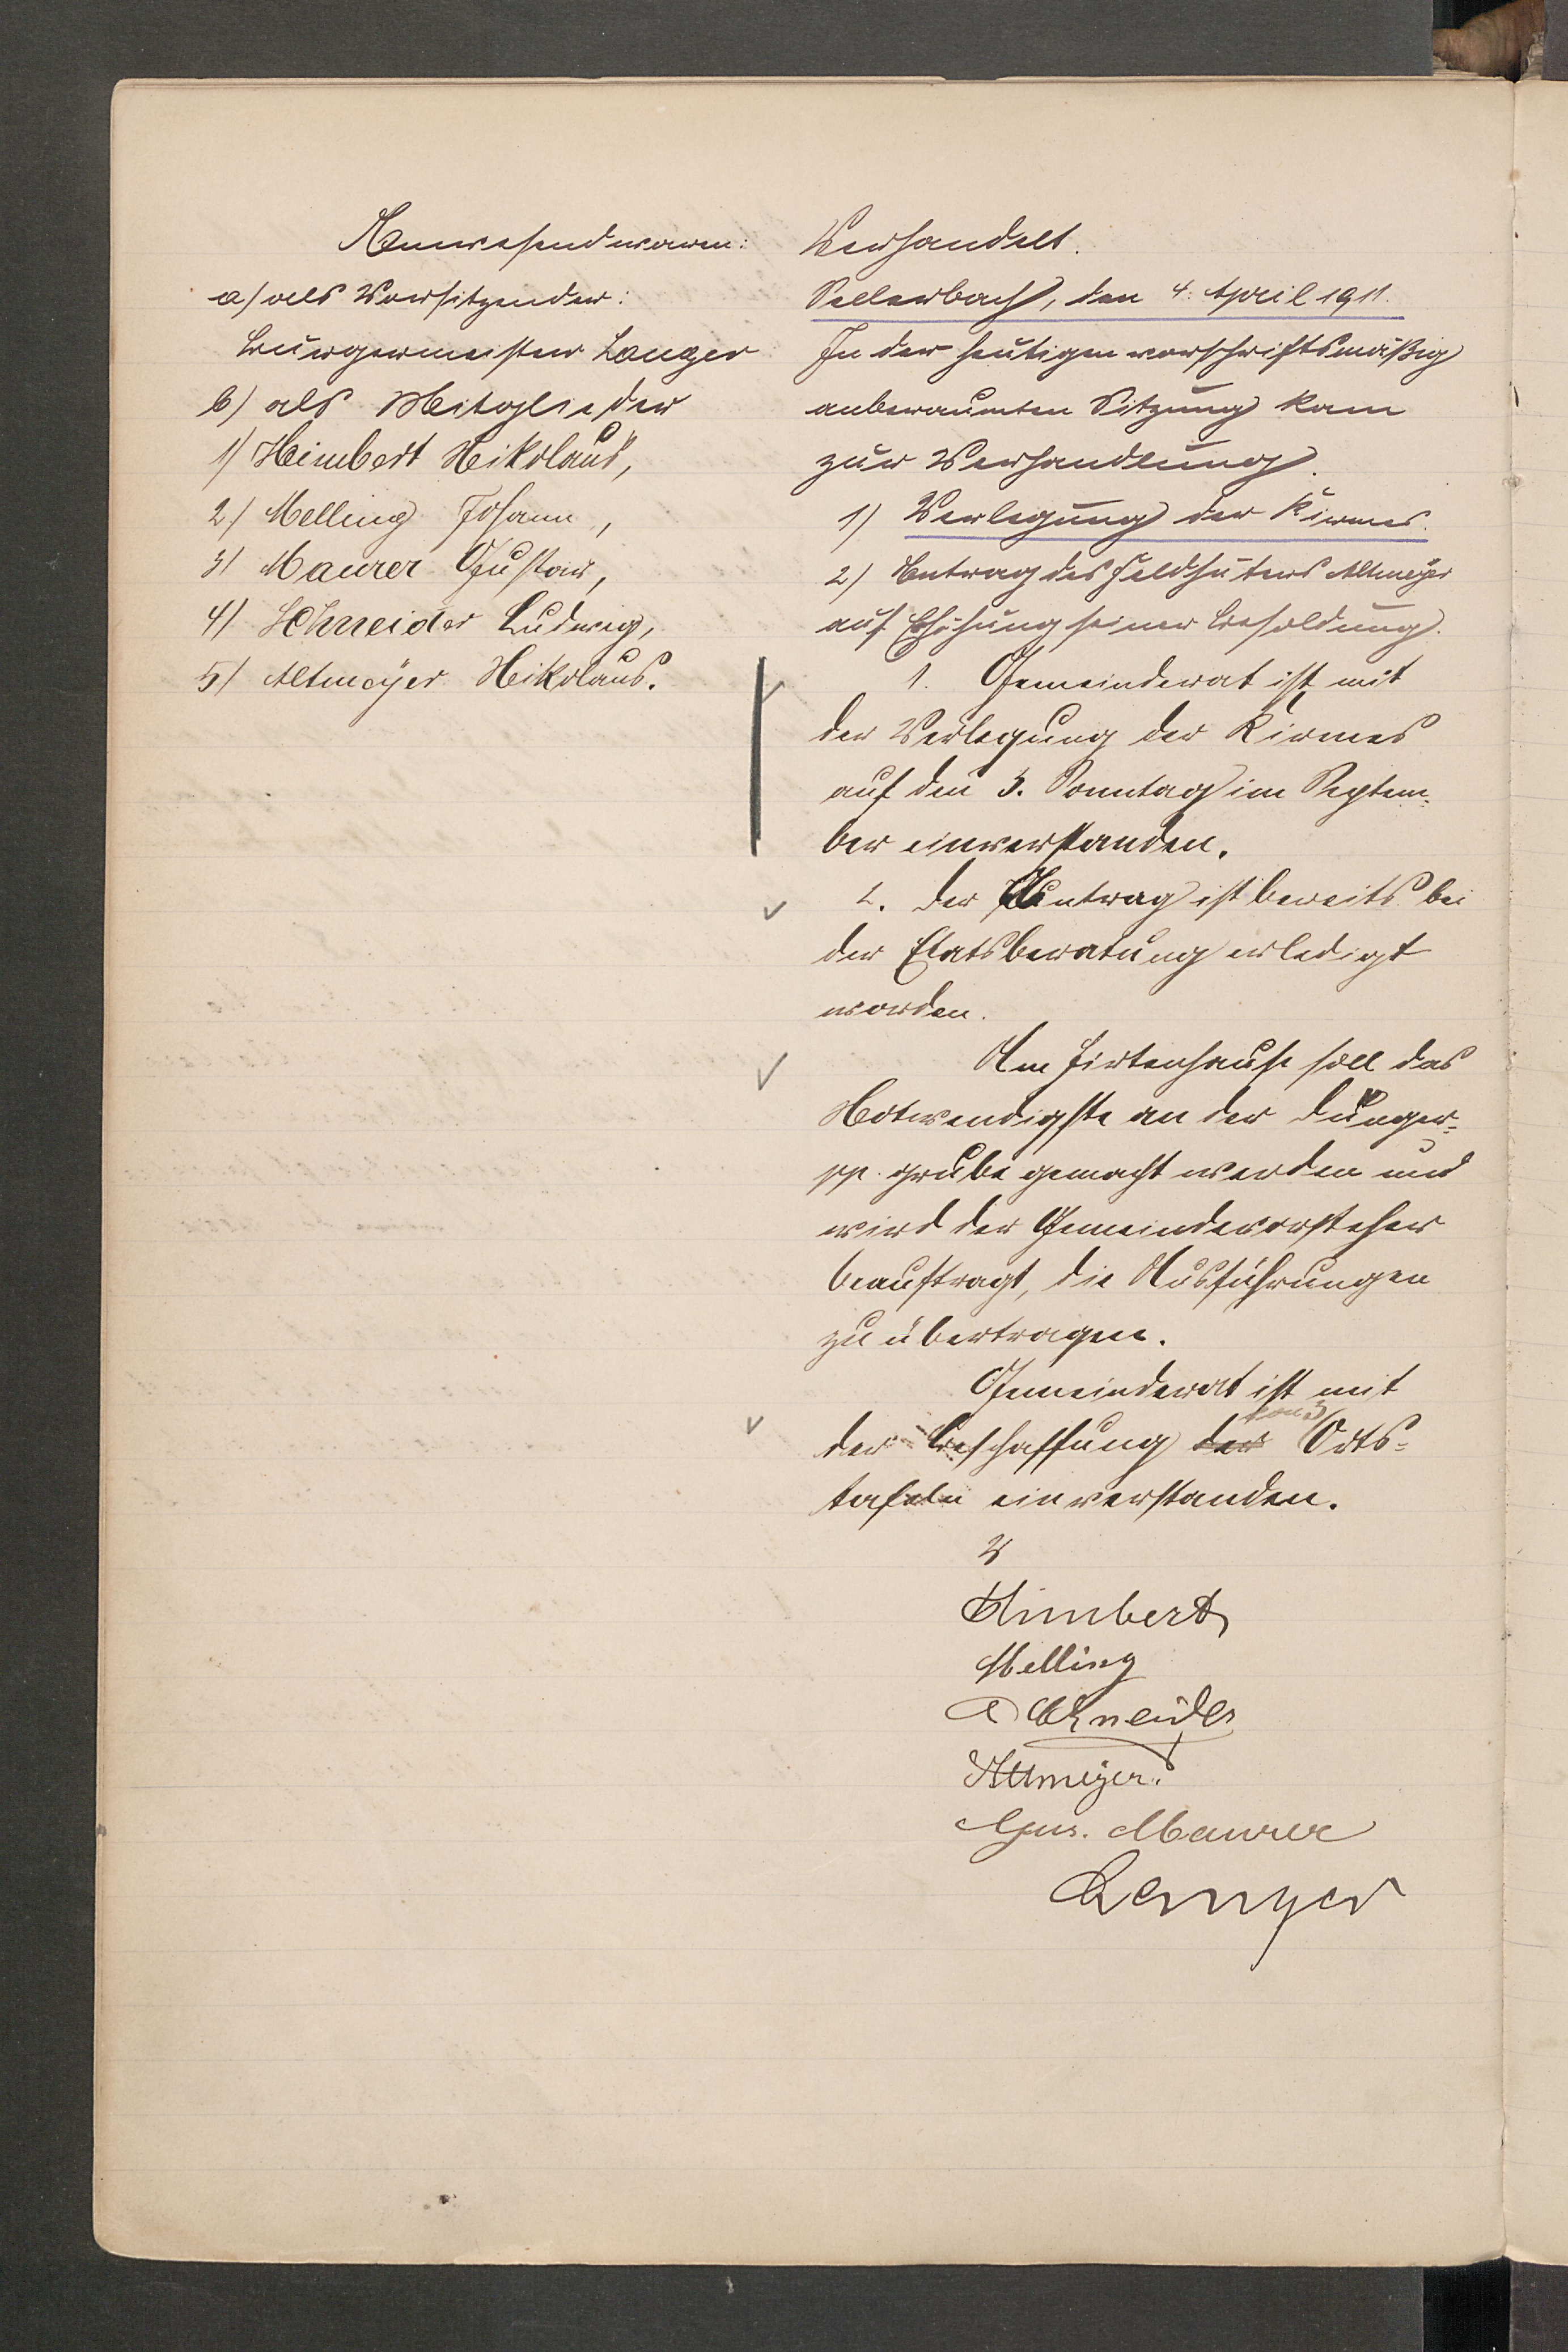 Anwesend waren:
a) als Vorsitzender:
Bürgermeister Langer
b) als Mitglieder
1) Heimbert Nikolaus,
2) Melling Johann,
3) Maurer Gustav,
4) Schneider Ludwig,
5) Altmeyer Nikolaus.
Verhandelt.
Sellerbach, den 4. April 1911.
In der heutigen vorschriftsmäßig
anberaumten Sitzung kam
zur Verhandlung.
1) Verlegung der Kirmes.
2) Antrag des Feldhüters Altmeyer
auf Erhöhung seiner Besoldung.
1. Gemeinderat ist mit
der Verlegung der Kirmes
auf den 3. Sonntag im Septem-
ber einverstanden.
2. Der Antrag ist bereits bei
der Etatsberatung erledigt
worden.
Am Hirtenhause soll das
Notwendigste an der Dünger-
pp. grube gemacht werden und
wird der Gemeindevorsteher
beauftragt, die Ausführungen
zu übertragen.
Gemeinderat ist mit
der Beschaffung der von 3 Orts-
tafeln einverstanden.
V
Himbert
Melling
Schneider
Altmeyer.
Gus. Maurer
Langer